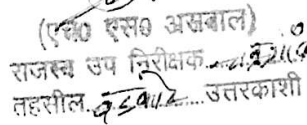 (एच० एस० असवाल)
राजस्व उप निरीक्षक
तहसील उत्तरकाशी